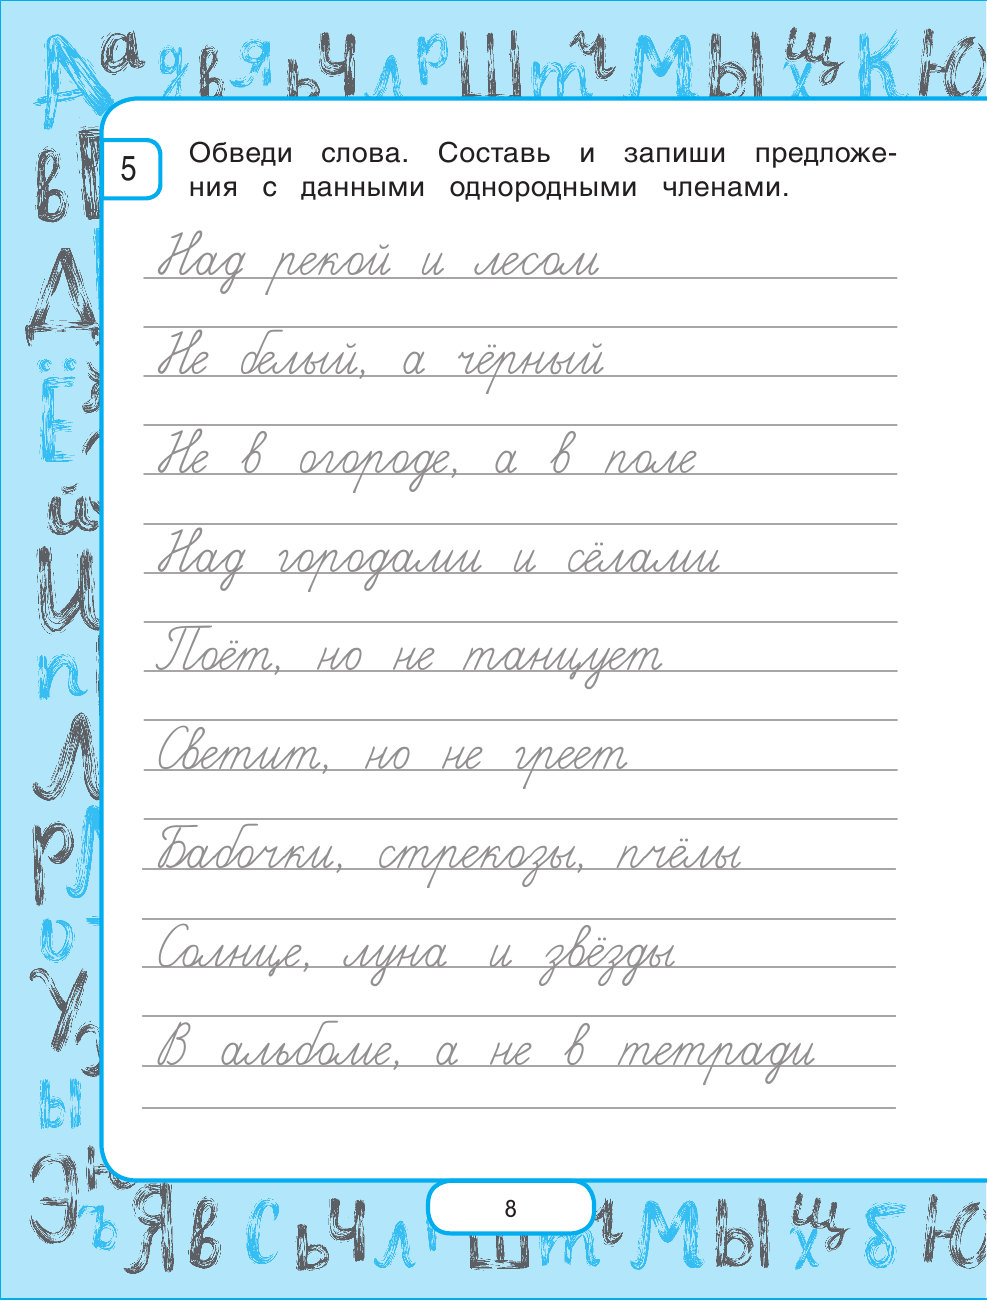 5
Обведи слова. Составь и запиши предложе-
ния с данными однородными членами.
Над рекой и лесом
Не белый, а чёрный
Не в огороде, а в поле
Над городами и сёлами
Поёт, но не танцует
Светит, но не греет
Бабочки, стрекозы, пчёлы
Солнце, луна и звёзды
В альбоме, а не в тетради
8